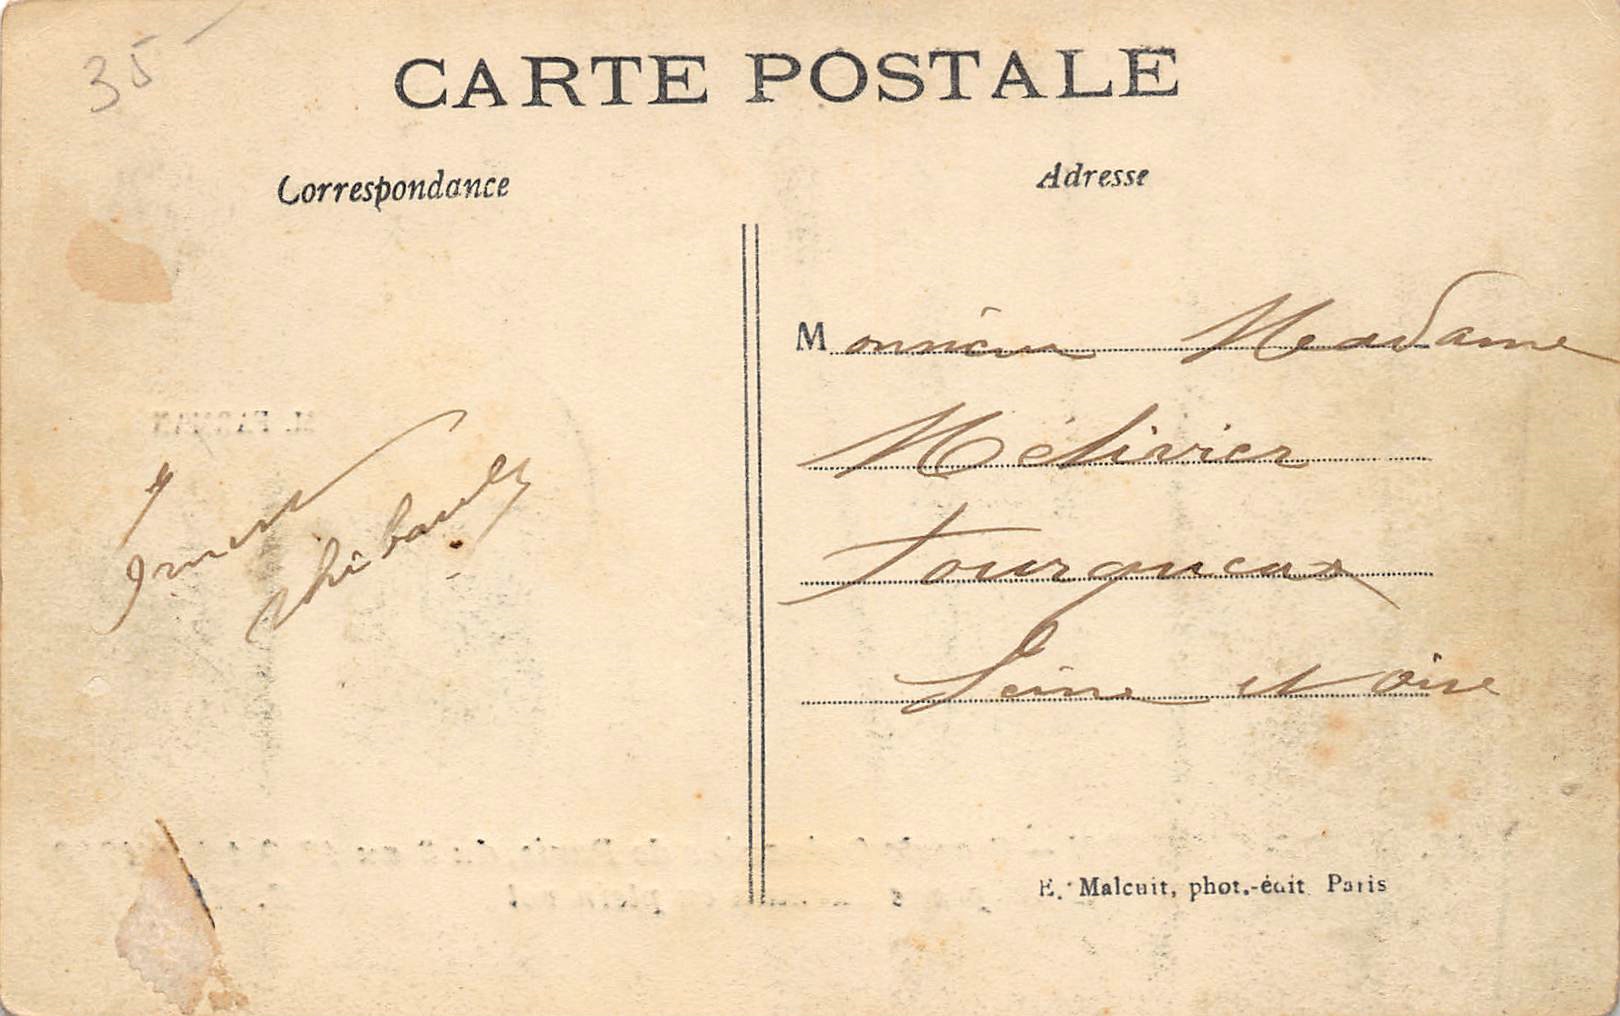 35
CARTE POSTALE
Correspondance
Adresse
Monsieur Madame
Métivier
Fourqueux
Seine et Oise
Thibault
E. Malcuit, phot.-édit Paris